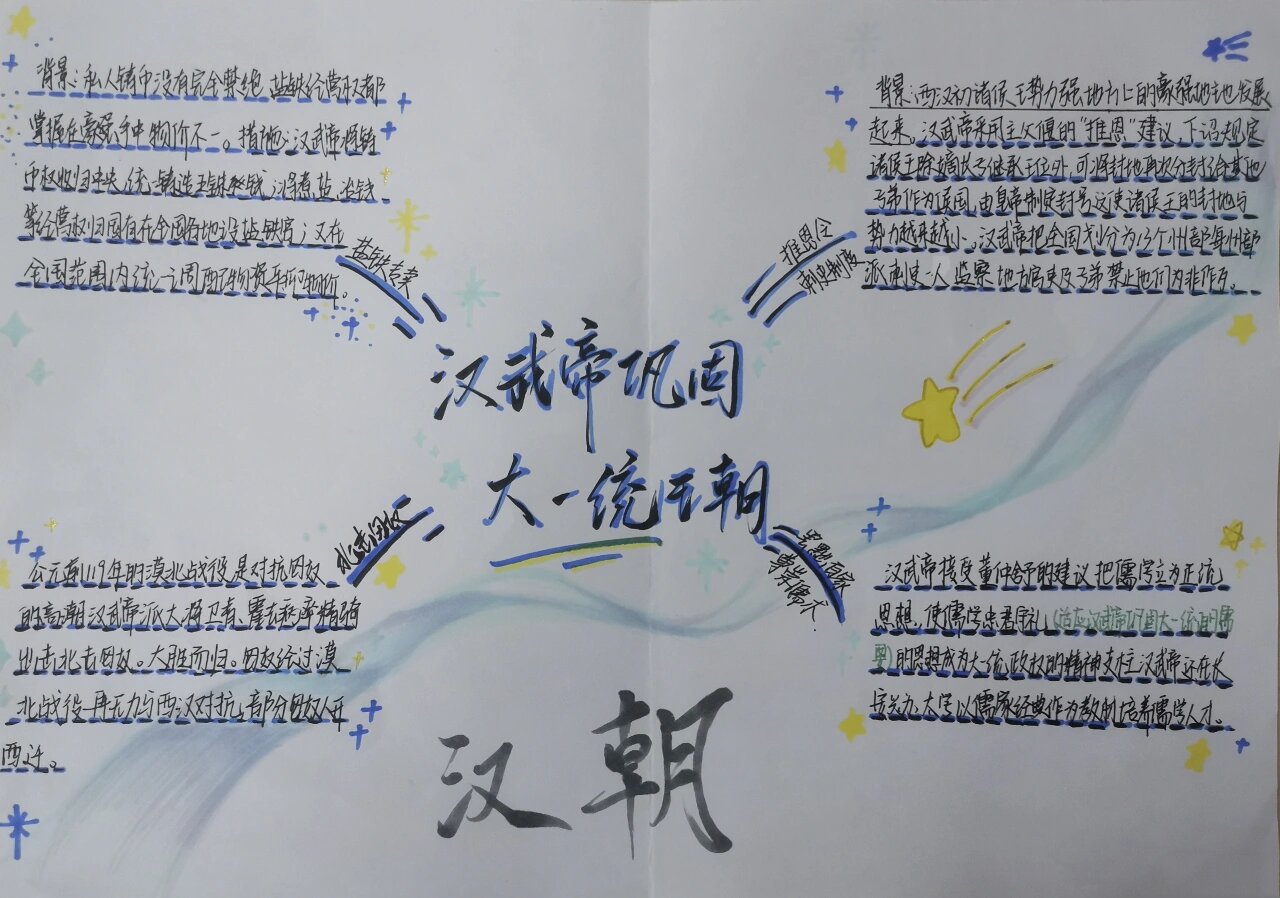 背景：私人铸币没有完全禁绝，盐铁经营权都
掌握在豪强手中物价不一。措施：汉武帝将铸
币权收归中央，统一铸造五铢钱，将煮盐、冶铁
等经营权归国有在全国各地设盐铁官；又在
全国范围内统一调配物资平抑物价。
盐铁专卖
背景：西汉初诸侯王势力强地方上的豪强地主也发展
起来，汉武帝采用主父偃的“推恩”建议，下诏规定
诸侯王除嫡长子继承王位外，可将封地再次分封给其他
子弟作为侯国，由皇帝制定封号，这使诸侯王的封地与
势力越来越小。汉武帝把全国划分为13个州部每州部
派刺史一人，监察地方官吏及子弟禁止他们为非作歹。
推恩令
刺史制度
汉武帝巩固
大一统王朝
北击匈奴
公元前119年的漠北战役，是对抗匈奴
的高潮汉武帝派大将卫青、霍去病率精锐
出击北击匈奴。大胜而归。匈奴经过漠
北战役一再无力与西汉对抗，部分匈奴人开
西迁。
罢黜百家
尊崇儒术
汉武帝接受董仲舒的建议，把儒学立为正统
思想，使儒学忠君守礼（适应汉武帝巩固大一统的需
要）的思想成为大一统政权的精神支柱汉武帝还在长
安兴办太学以儒家经典作为教材培养儒学人才。
汉朝